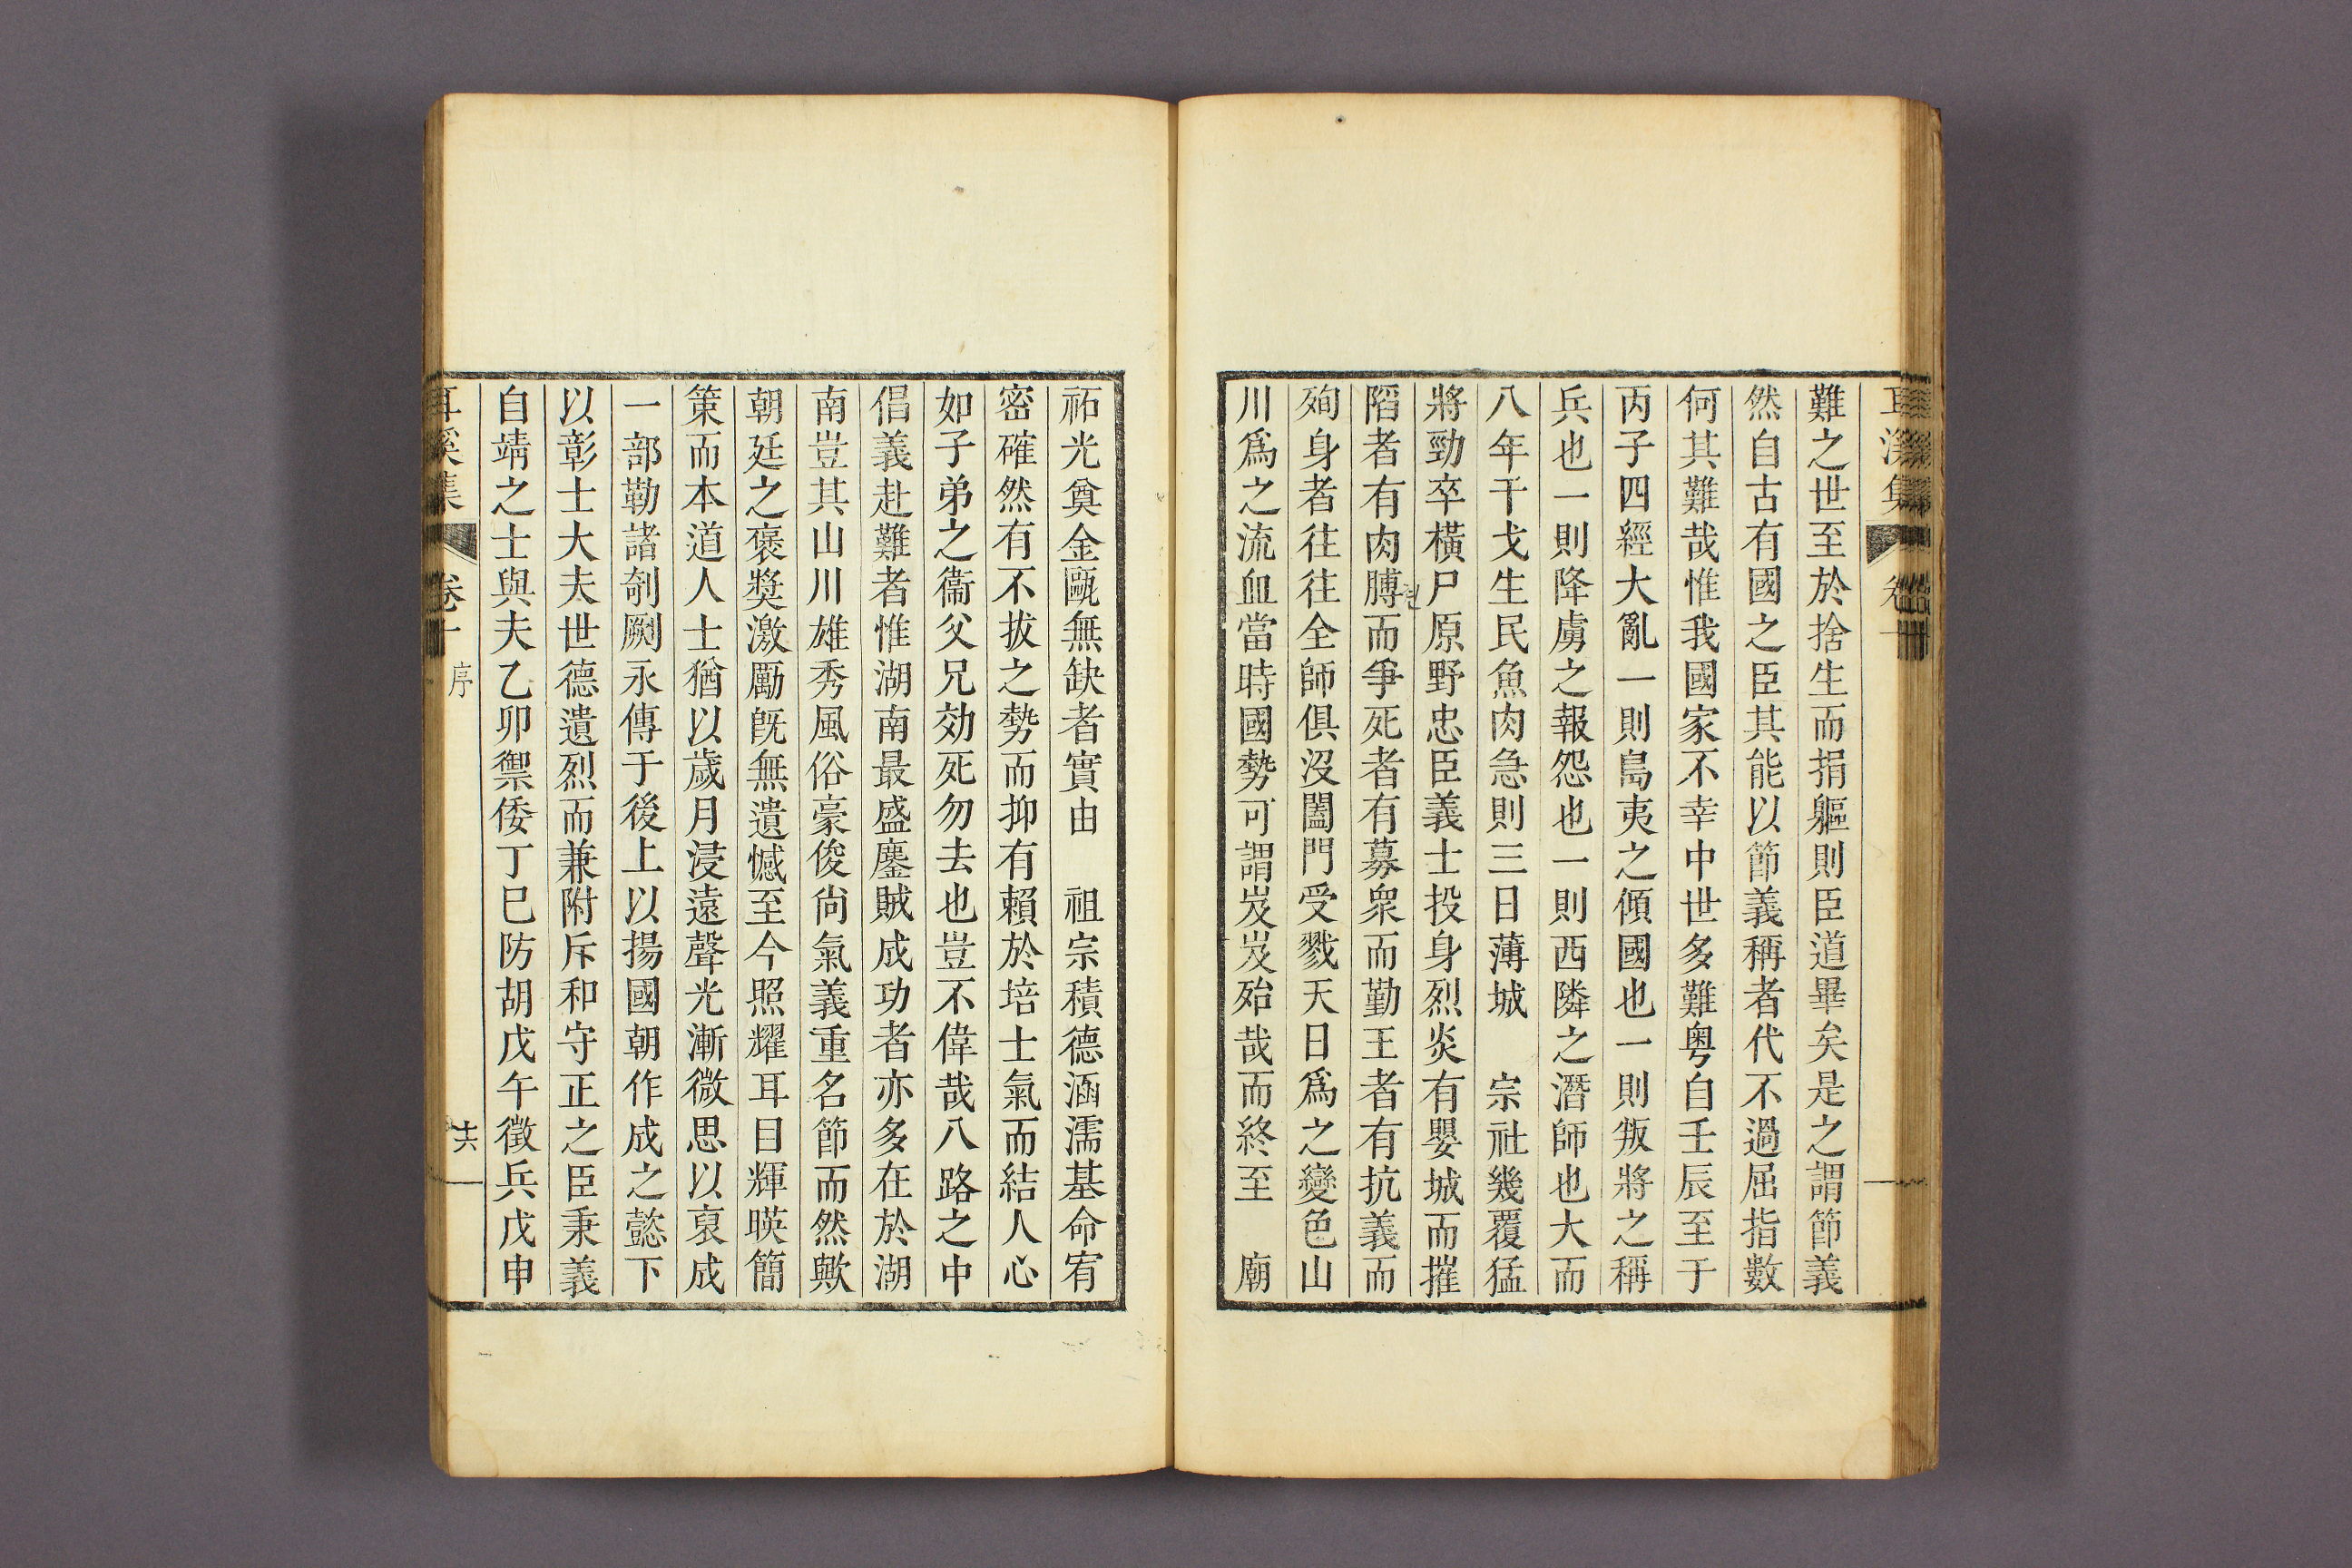 耳溪集 卷十
難之世至於捨生而捐軀則臣道畢矣是之謂節義
然自古有國之臣其能以節義稱者代不過屈指數
何其難哉惟我國家不幸中世多難粤自壬辰至于
丙子四經大亂一則島夷之傾國也一則叛將之稱
兵也一則降虜之報怨也一則西隣之潛師也大而
八年干戈生民魚肉急則三日薄城　宗社幾覆猛
將勁卒橫尸原野忠臣義士投身烈炎有嬰城而摧
陷者有肉膊而爭死者有募衆而勤王者有抗義而
殉身者往往全師俱沒闔門受戮天日爲之變色山
川爲之流血當時國勢可謂岌岌殆哉而終至　廟
祏光奠金甌無缺者實由　祖宗積德涵濡基命宥
密確然有不拔之勢而抑有賴於培士氣而結人心
如子弟之衞父兄効死勿去也豈不偉哉八路之中
倡義赴難者惟湖南最盛鏖賊成功者亦多在於湖
南豈其山川雄秀風俗豪俊尙氣義重名節而然歟
朝廷之褒奬激勵旣無遺憾至今照耀耳目輝暎簡
策而本道人士猶以歲月浸遠聲光漸微思以裒成
一部勒諸剞劂永傳于後上以揚國朝作成之懿下
以彰士大夫世德遺烈而兼附斥和守正之臣秉義
自靖之士與夫乙卯禦倭丁巳防胡戊午徵兵戊申
耳溪集 卷十 序 十六